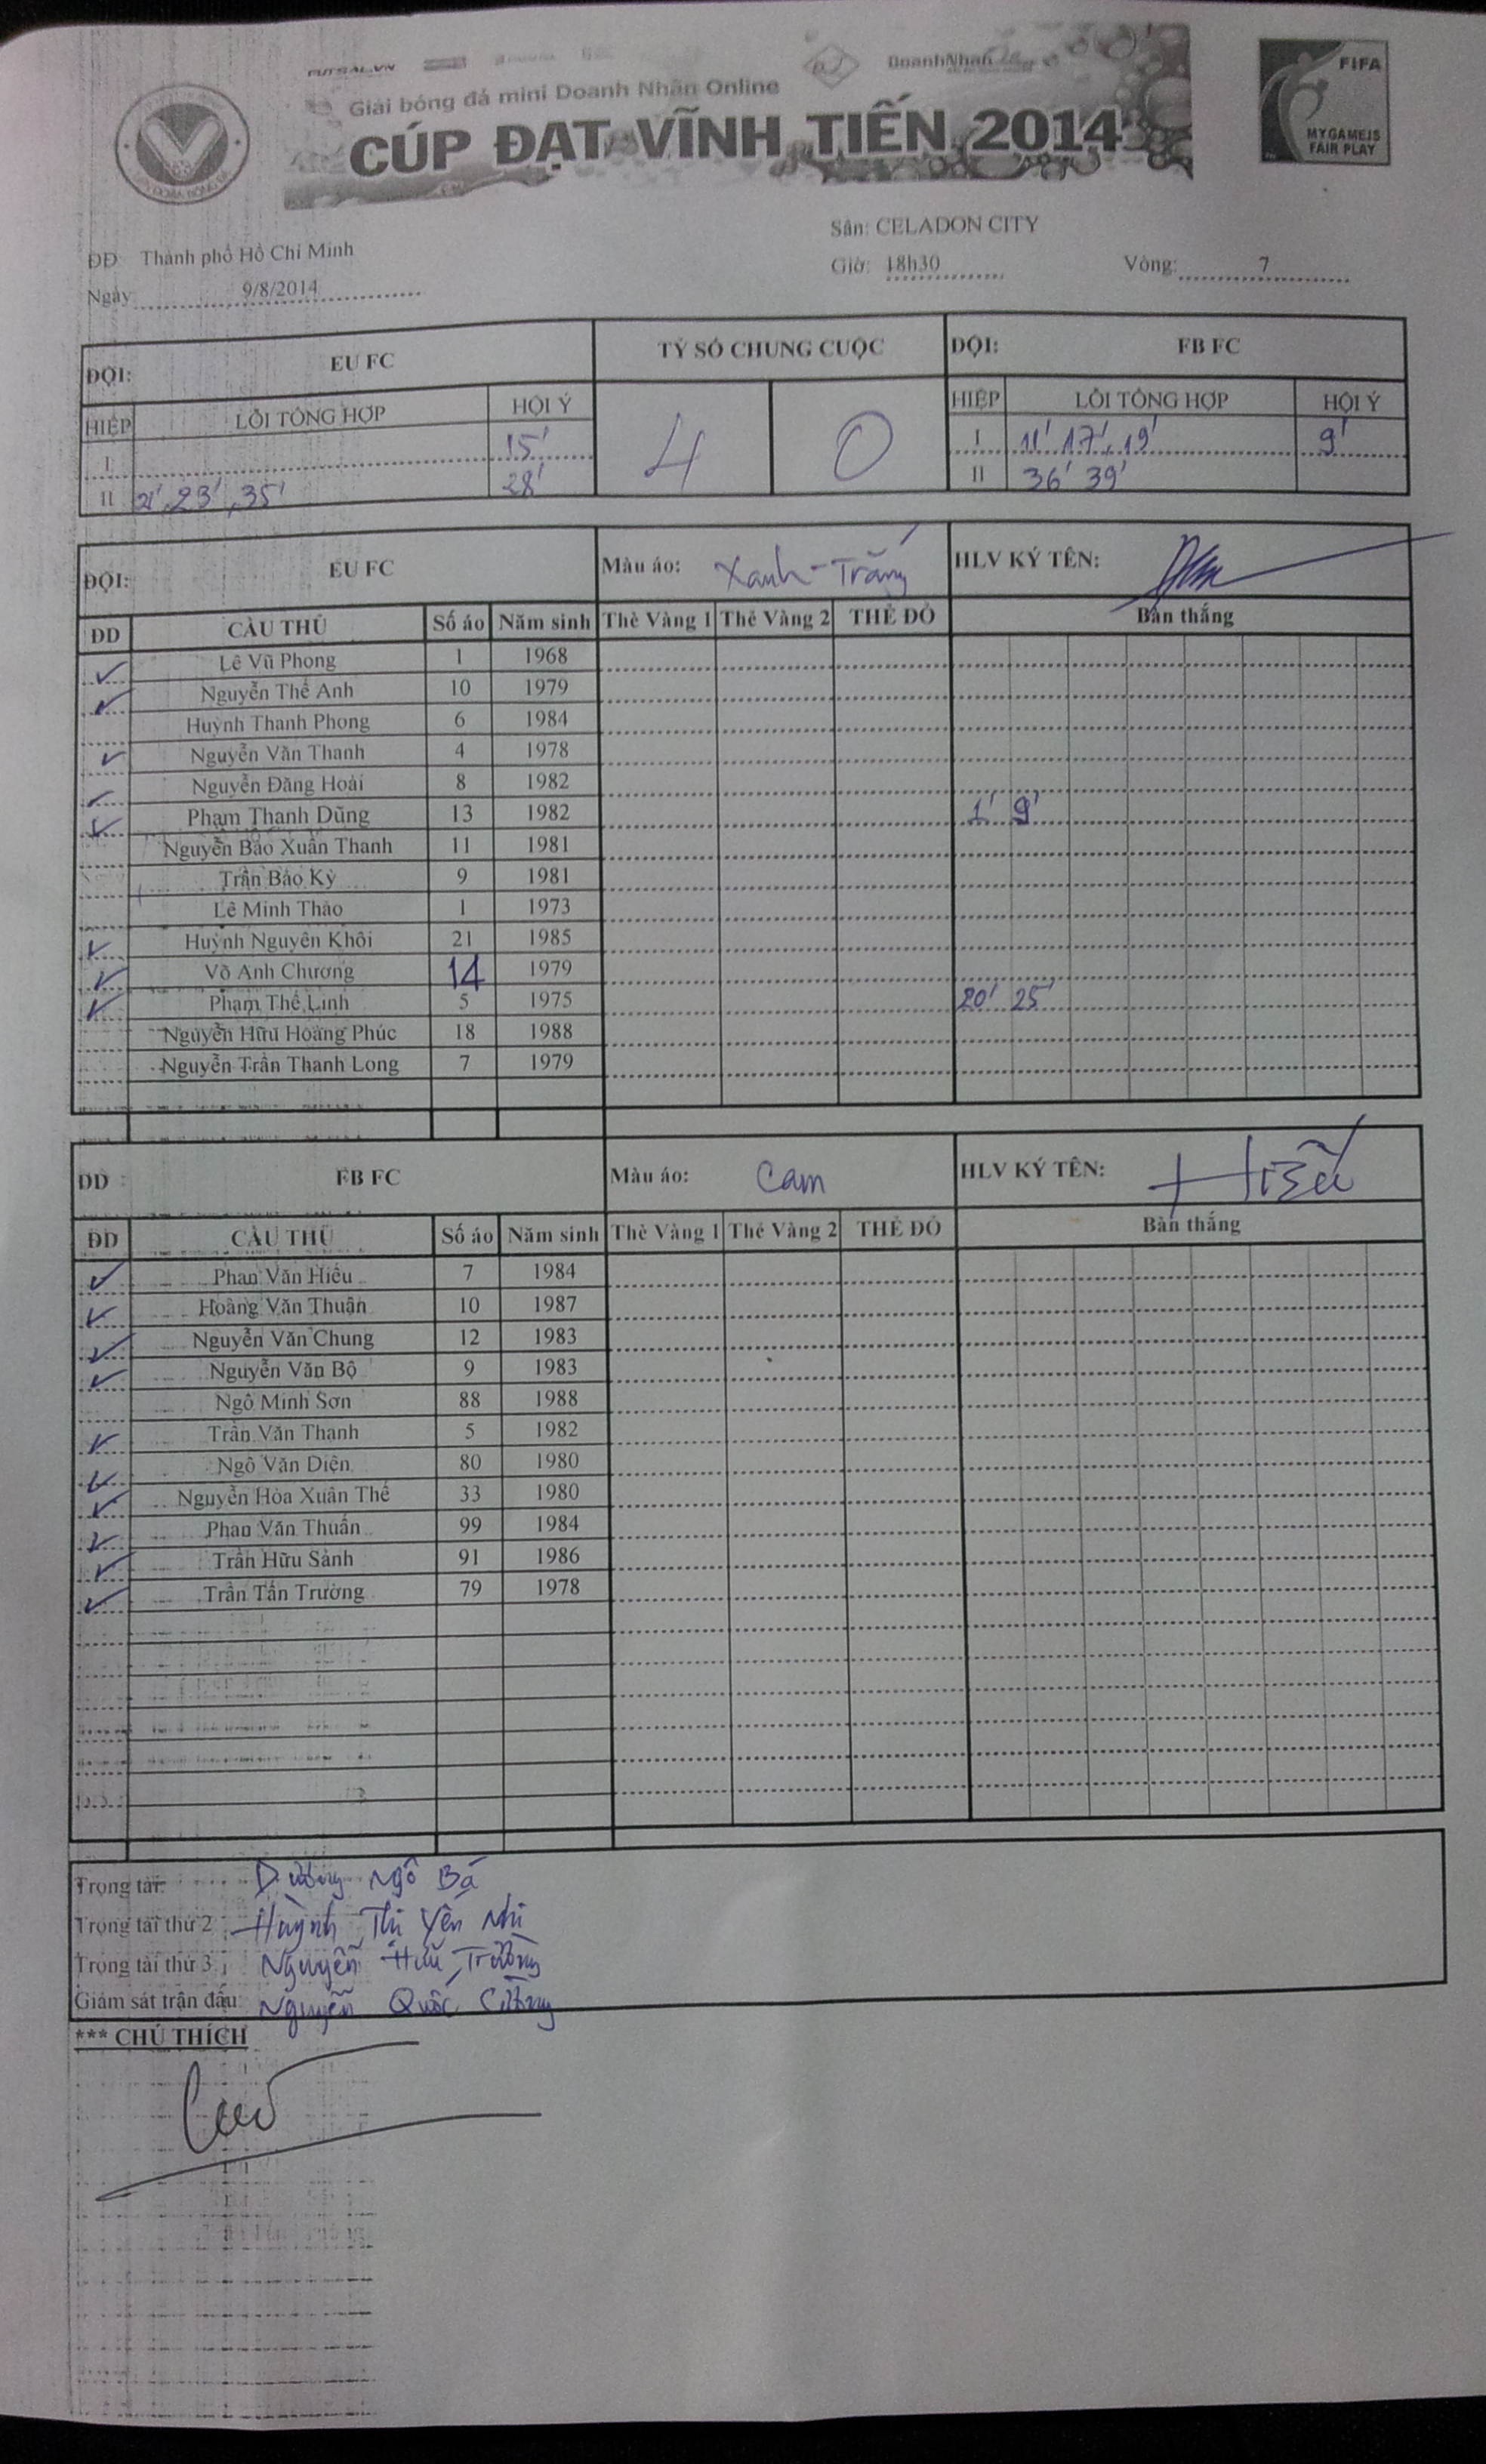 FUTSAL.VN DoanhNhân
Giải bóng đá mini Doanh Nhân Online
CÚP ĐẠT VĨNH TIẾN 2014
FIFA
MY GAME IS
FAIR PLAY
ĐĐ: Thành phố Hồ Chí Minh Sân: CELADON CITY
Ngày 9/8/2014 Giờ: 18h30 Vòng: 7
ĐỘI: EU FC TỶ SỐ CHUNG CUỘC ĐỘI: FB FC
HIỆP LỖI TỔNG HỢP HỘI Ý 4 0 HIỆP LỖI TỔNG HỢP HỘI Ý
I 15' I 11' 17', 19' 9'
II 21', 23', 35' 28' II 36' 39'
ĐỘI: EU FC Màu áo: Xanh - Trắng HLV KÝ TÊN:
ĐD CẦU THỦ Số áo Năm sinh Thẻ Vàng 1 Thẻ Vàng 2 THẺ ĐỎ Bàn thắng
Lê Vũ Phong 1 1968
Nguyễn Thế Anh 10 1979
Huỳnh Thanh Phong 6 1984
Nguyễn Văn Thanh 4 1978
Nguyễn Đăng Hoài 8 1982
Phạm Thanh Dũng 13 1982 1' 9'
Nguyễn Bảo Xuân Thanh 11 1981
Trần Bảo Kỳ 9 1981
Lê Minh Thảo 1 1973
Huỳnh Nguyên Khôi 21 1985
Võ Anh Chương 14 1979
Phạm Thế Linh 5 1975 20' 25'
Nguyễn Hữu Hoàng Phúc 18 1988
Nguyễn Trần Thanh Long 7 1979
ĐD : FB FC Màu áo: Cam HLV KÝ TÊN: Hiếu
ĐD CẦU THỦ Số áo Năm sinh Thẻ Vàng 1 Thẻ Vàng 2 THẺ ĐỎ Bàn thắng
Phan Văn Hiếu 7 1984
Hoàng Văn Thuận 10 1987
Nguyễn Văn Chung 12 1983
Nguyễn Văn Bộ 9 1983
Ngô Minh Sơn 88 1988
Trần Văn Thanh 5 1982
Ngô Văn Diện 80 1980
Nguyễn Hòa Xuân Thế 33 1980
Phan Văn Thuấn 99 1984
Trần Hữu Sảnh 91 1986
Trần Tấn Trường 79 1978
Trọng tài: Dương Ngô Bá
Trọng tài thứ 2 Huỳnh Thị Yến Nhi
Trọng tài thứ 3 : Nguyễn Hữu Trường
Giám sát trận đấu Nguyễn Quốc Cường
*** CHÚ THÍCH